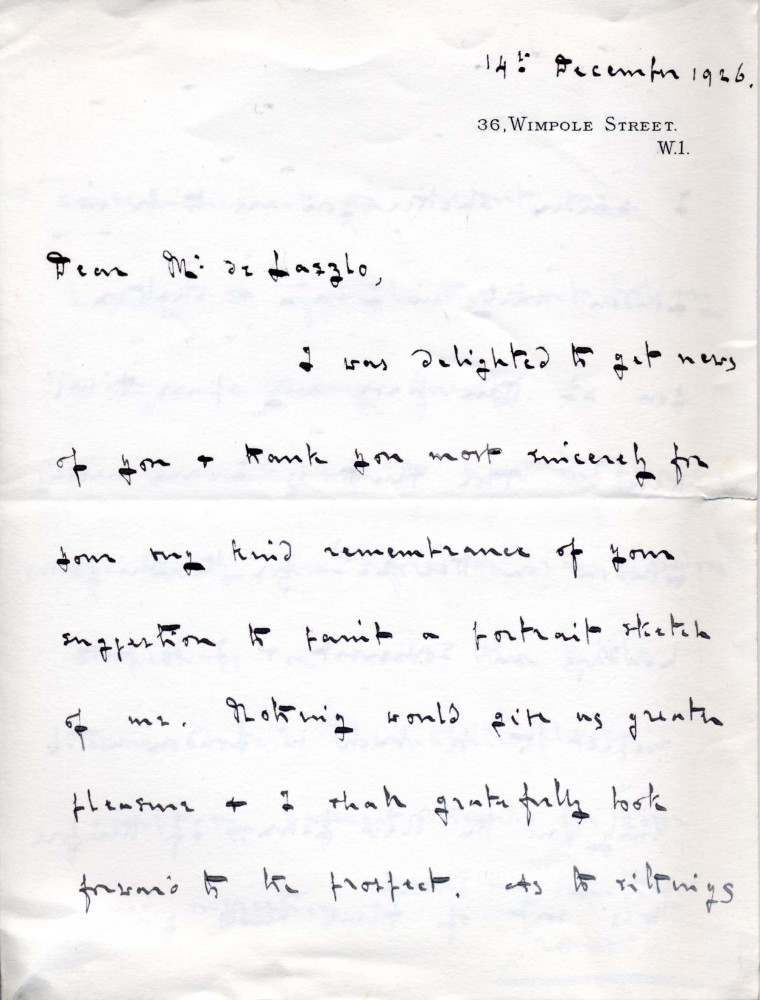 14th December 1926.
36, WIMPOLE STREET.
W.1.
Dear Mr. de Laszlo,
I was delighted to get news
of you + thank you most sincerely for
your very kind remembrance of your
suggestion to paint a portrait sketch
of me. Nothing would give us greater
pleasure + I shall gratefully look
forward to the prospect. As to sittings